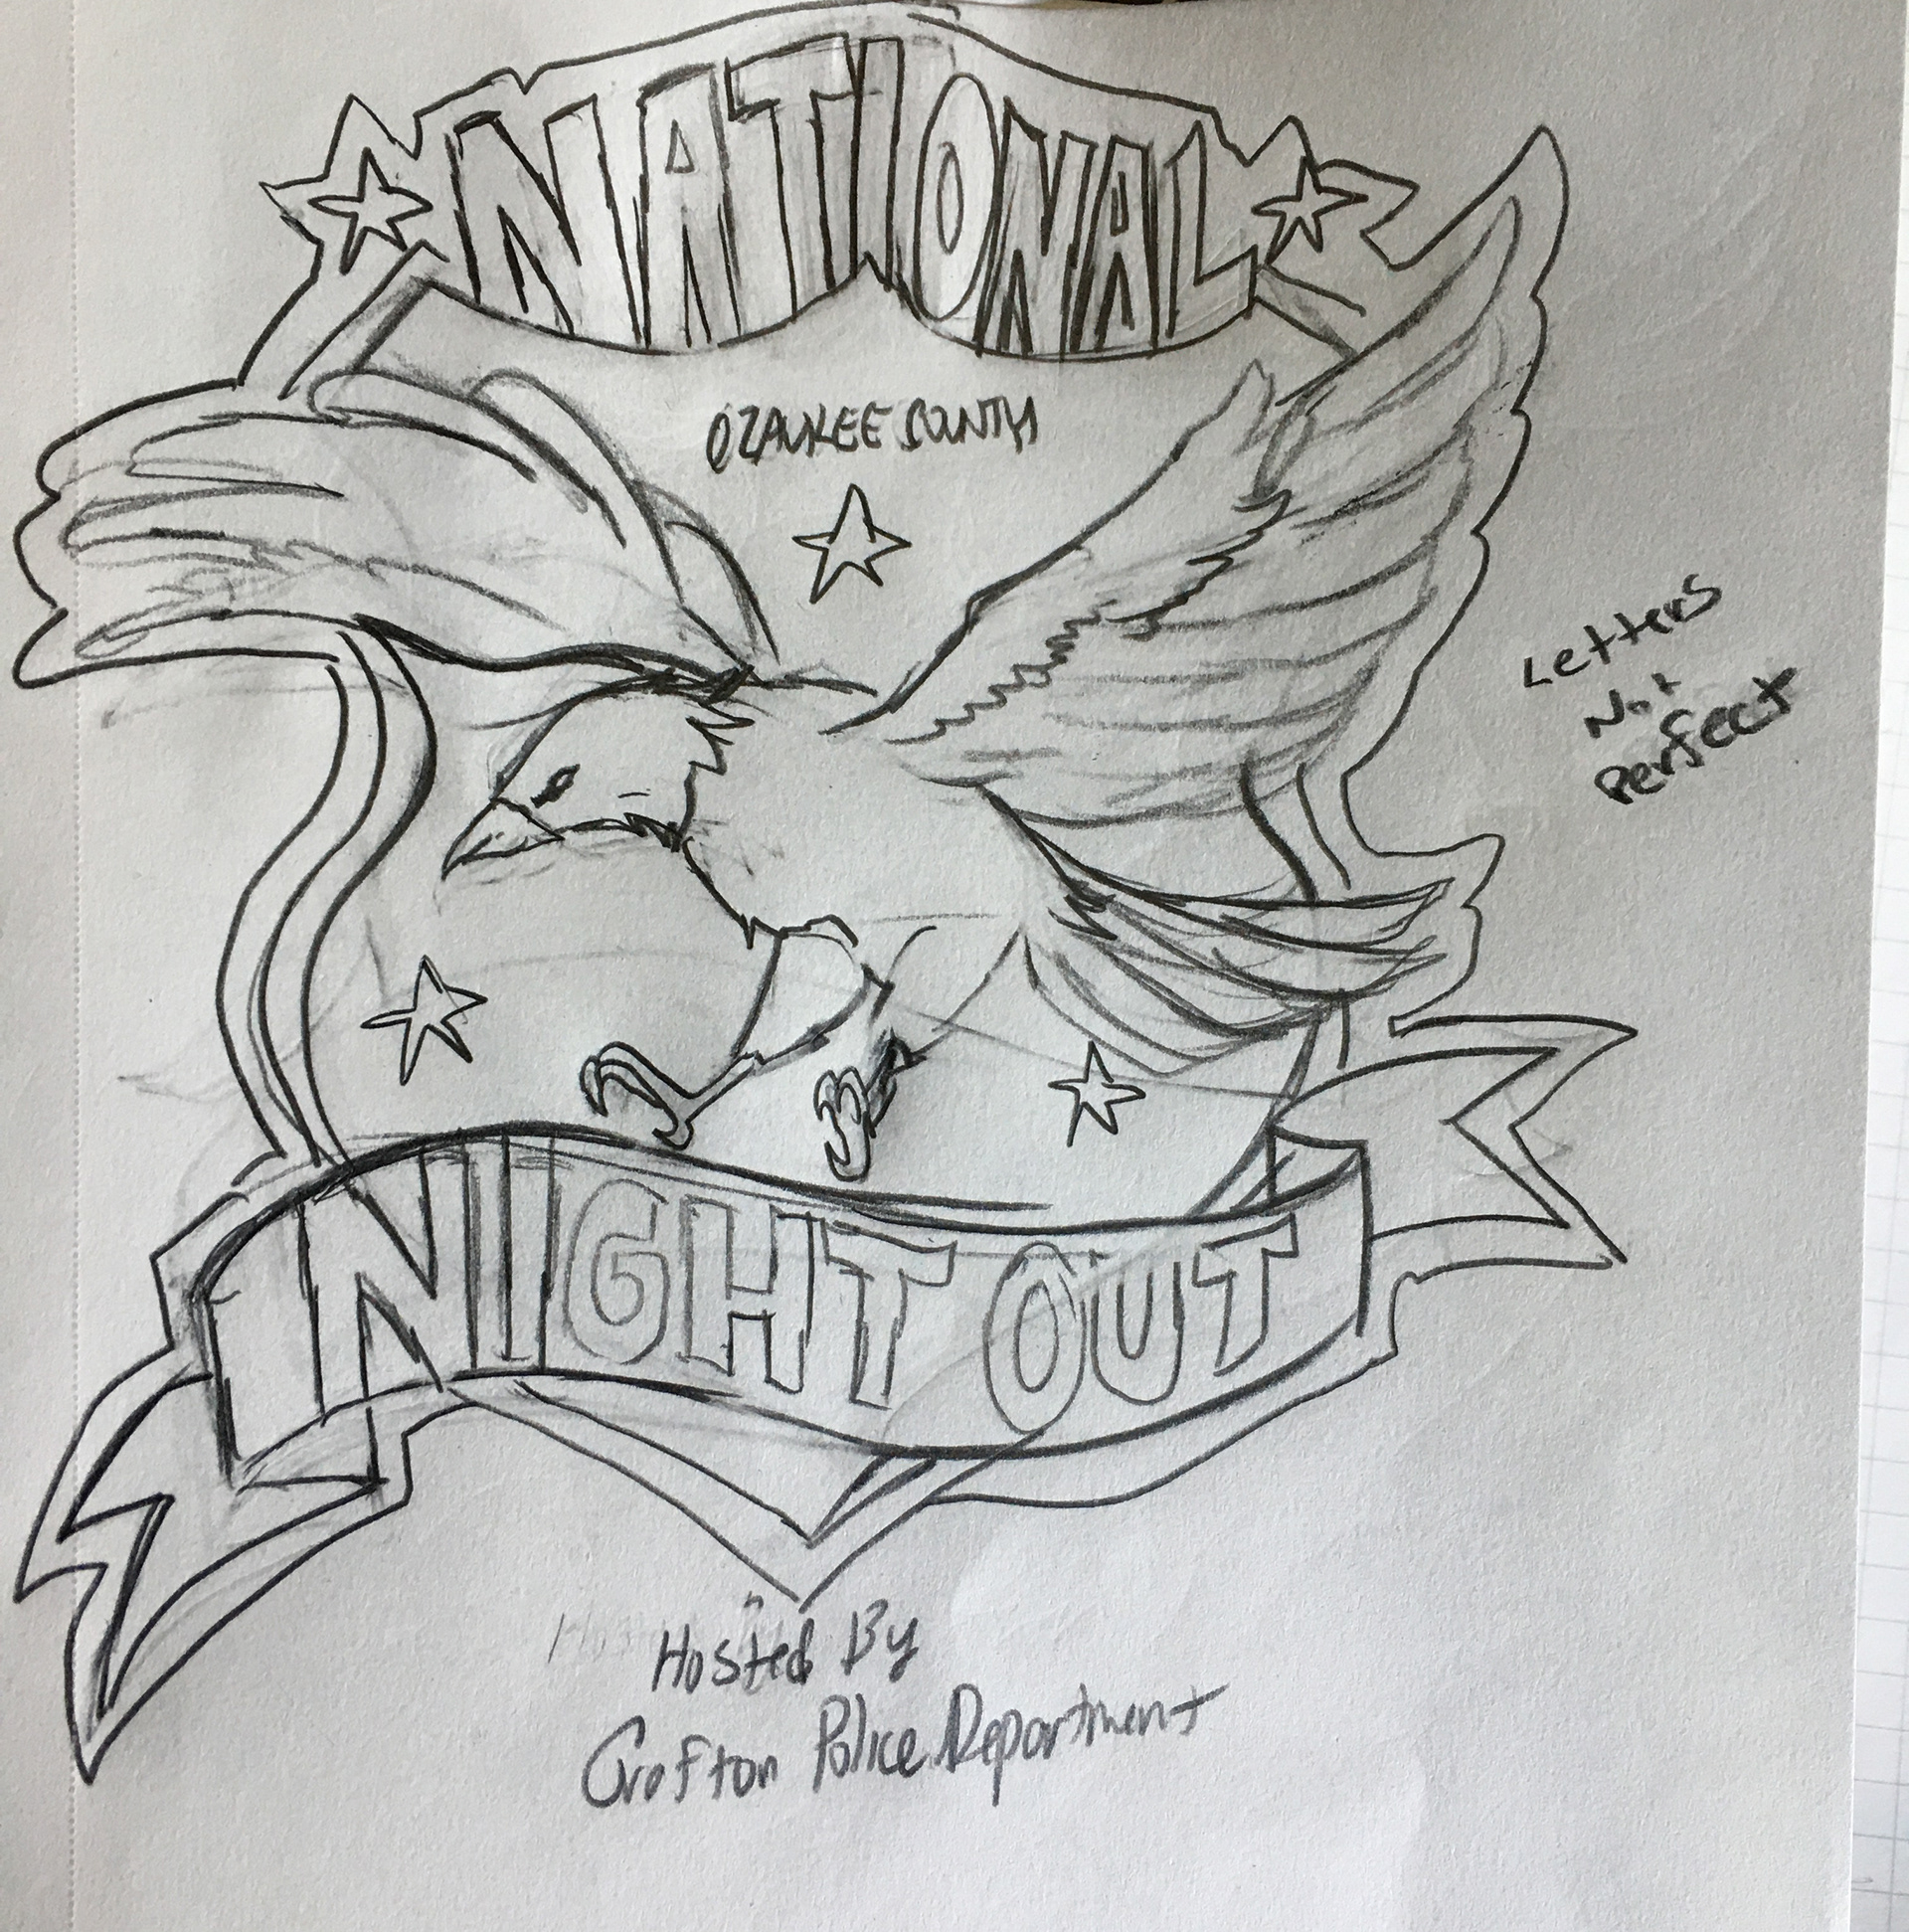 NATIONAL
OZAUKEE COUNTY
Letters
Not
Perfect
NIGHT OUT
Hosted By
Grafton Police Department